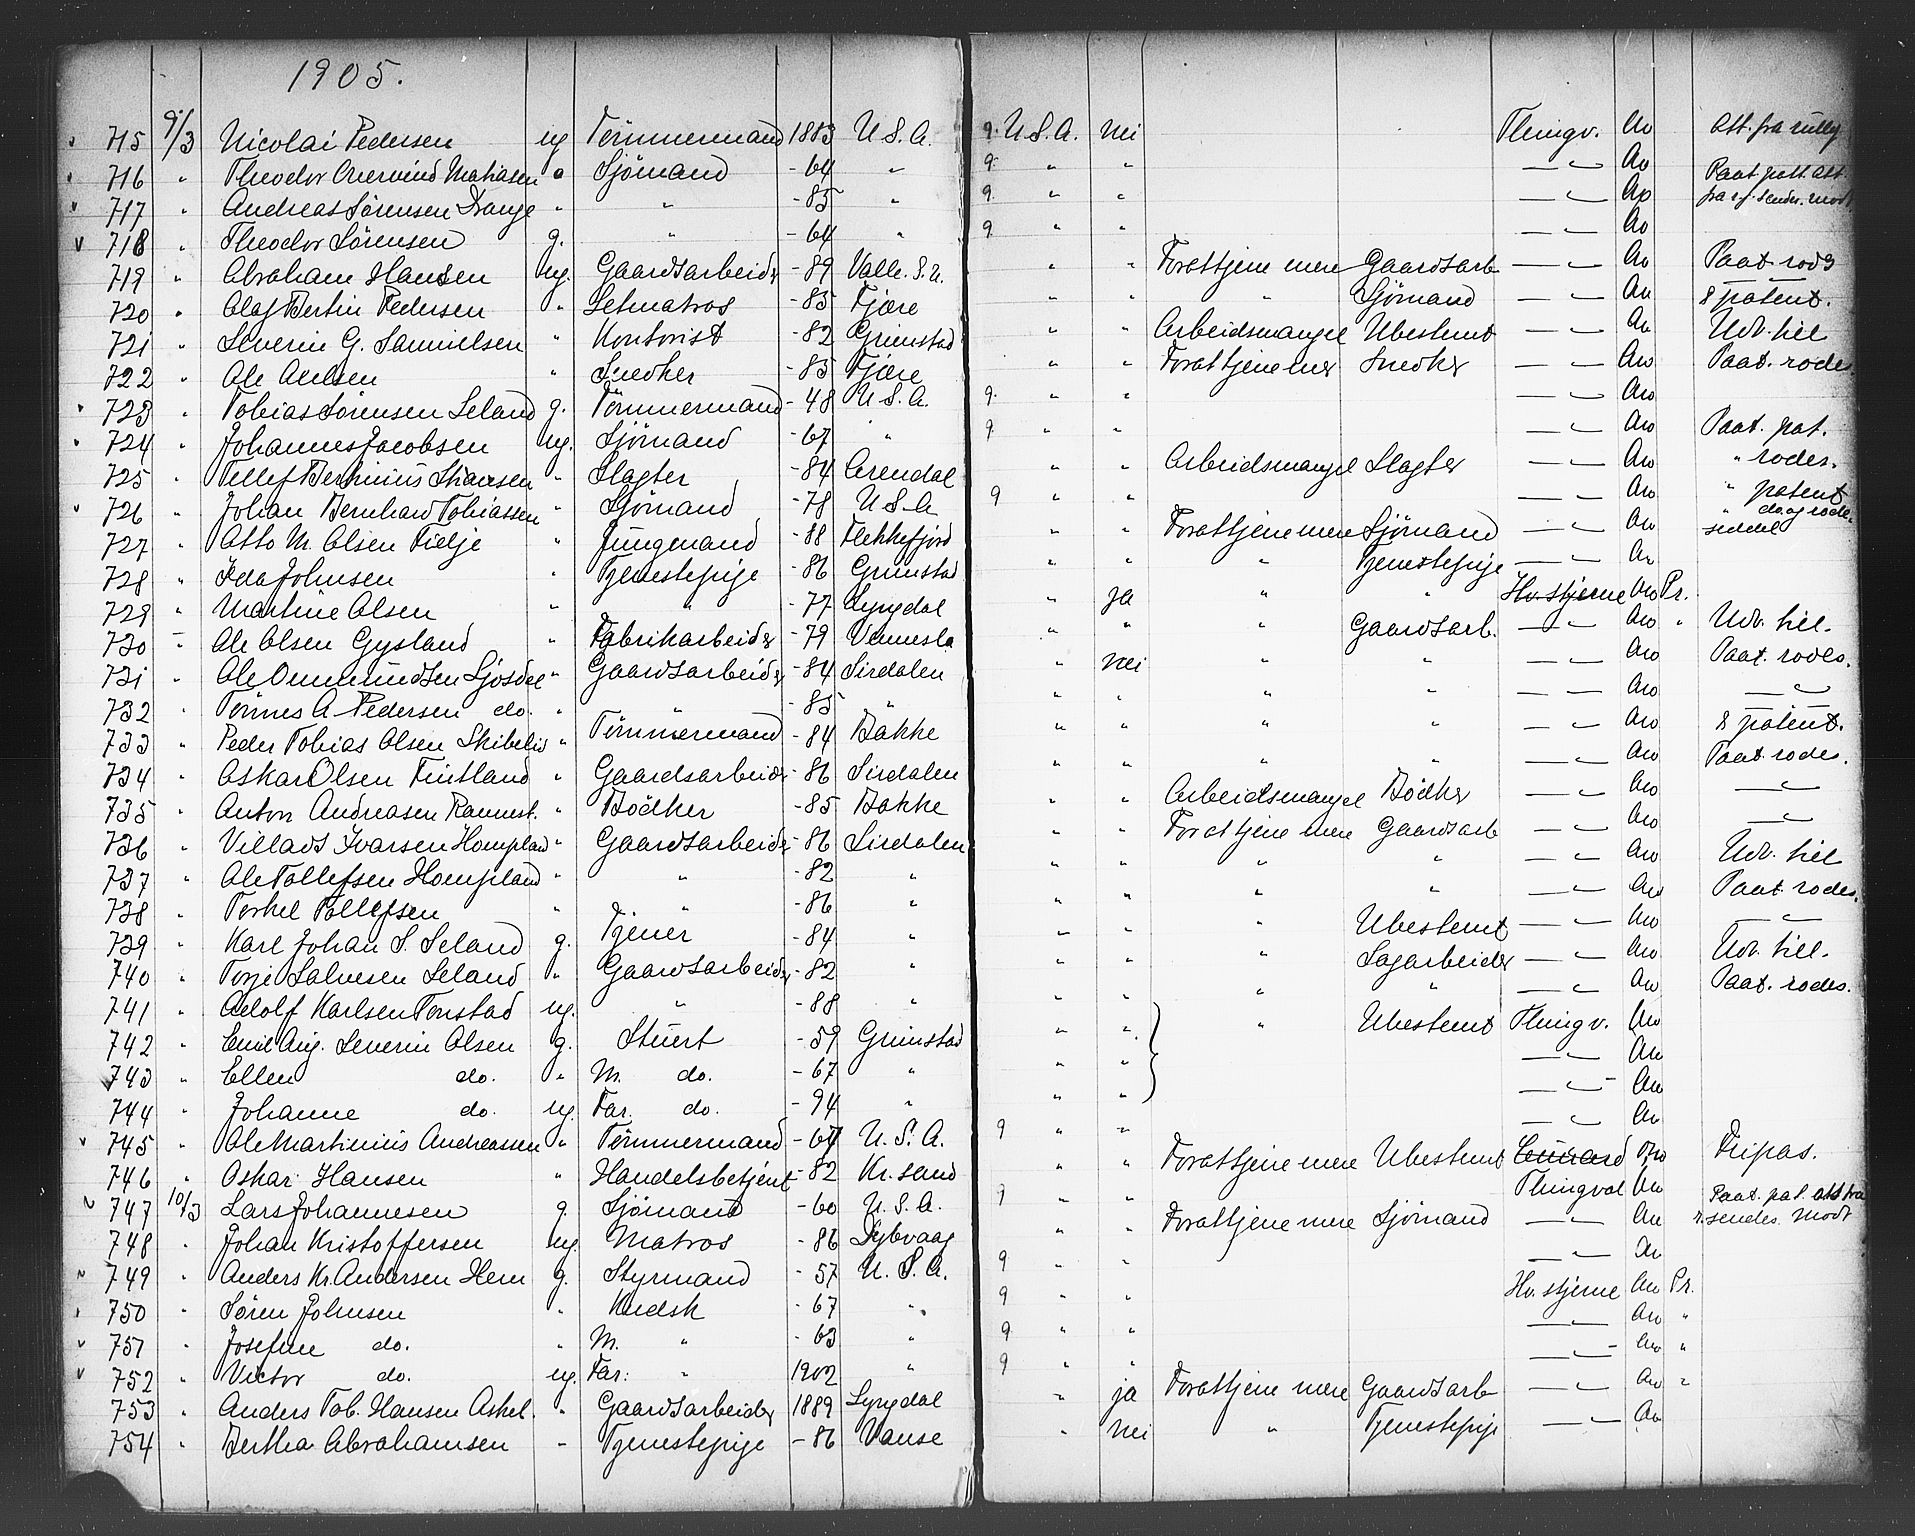 1905.
715 9/3 Nicolai Pedersen ug Tömmermand 1883 U.S.A. 9. U.S.A. nei Thingv. Ao Att. fra rully
716 " Theodor Onervind Mathiasen " Sjömand -64 " 9. " " — " — Ao Paat. patt. att.
717 " Andreas Sørensen Drange " " -85 " 9 " " — " — Ao fra s.f. sendes. modt.
718 " Theodor Sørensen g. " -64 " 9 " " Ao
719 " Abraham Hansen ug. Gaardsarbeider -89 Valle. S. " " Forattjene mere Gaardsarb — " — Ao Paat. rods
720 " Olaf Bertin Pedersen " Letmatros -85 Fjære " " " Sjömand — " — Ao 8 patent.
721 " Severin G. Samuelsen " Kontorist -82 Grimstad " " Arbeidsmangel Ubestemt — " — Ao Udv. till
722 " Ole Olelsen " Snedker -85 Fjære " " Forattjene mer Snedker — " — Ao Paat. rodes.
723 " Tobias Sørensen Seland g. Tömmermand -48 U.S.A. 9. " " — " — Ao
724 " Johannes Jacobsen ug. Sjömand -67 " 9 " " — " — Ao Paat. pat.
725 " Tellef Berthinius " Slagter -84 Arendal " " Arbeidsmangel Slagter — " — Ao " rodes.
726 " Johan Bernhard Tobiassen " Sjömand -78 U.S.A 9 " " — " — Ao " patent
727 " Otto M. Olsen Fidje " Jungmand -88 Flekkefjord " " Forattjene mere Sjömand — " — Ao " do. og rode-
seddel
728 " Ida Johnsen " Tjenestepige -86 Grimstad " " " Tjenestepige — " — Ao
729 " Martine Olsen " " -77 Lyngdal " ja " " Hv. stjerne Ao Pr.
730 " Ole Olsen Gysland " Fabrikarbeider -79 Vennesla " " " Gaardsarb. — " — Ao " Udv. till.
731 " Ole Ommundsen Sjösdal " Gaardsarbeider -84 Sirdalen " nei " " — " — Ao Paat. rodes.
732 " Tönnes A. Pedersen do. " " -85 " " " " " — " — Ao — " —
733 " Peder Tobias Olsen Skibelid " Tömmermand -84 Bakke " " " " — " — Ao 8 patent.
734 " Oskar Olsen Fintland " Gaardsarbeider -86 Sirdalen " " " " — " — Ao Paat. rodes.
735 " Anton Andreasen Rannest. " Bödker -85 Bakke " " Arbeidsmangel Bödker — " — Ao — " —
736 " Villads Ivarsen Hompland " Gaardsarbeider -86 Sirdalen " " Forattjene mere Gaardsarb — " — Ao — " —
737 " Ole Tollefsen Hompland " " -82 " " " " " — " — Ao Udv. till
738 " Torkel Tollefsen " " -86 " " " " " — " — Ao Paat. rodes.
739 " Karl Johan S. Seland g. Tjener -84 " " " " Ubestemt — " — Ao — " —
740 " Torje Salvesen Seland " Gaardsarbeider -82 " " " " Sagarbeider — " — Ao Udv. till.
741 " Adolf Karlsen Tonstad ug. " -88 " " " " " — " — Ao Paat. rodes.
742 " Emil Aug. Severin Olsen g. Stuert -59 Grimstad " " " Ubestemt Thingv. Ao
743 " Ellen do. " M. do. -67 " " " — " — Ao
744 " Johanne do. ug. Far. do. -94 " " " — " — Ao
745 " Ole Martinius Andreassen " Tömmermand -64 U.S.A. 9 " " — " — Ao
746 " Oskar Hansen " Handelsbetjent -82 Kr.sand " " Forattjene mere Ubestemt Cunard Ao Fripas.
747 10/3 Lars Johannesen g. Sjömand -60 U.S.A. 9 " " Thingval Ao Paat. pat. att fra
748 " Johan Kristoffersen ug. Matros -86 Dybvaag " " Forattjene mere Sjömand — " — Ao r. sendes. Modt
749 " Anders Kr. Andersen Hem g. Styrmand -57 U.S.A. 9 " " — " — Ao
750 " Søren Johnsen " Kudsk -67 " 9 " " Hv. stjerne Ao Pr.
751 " Josefine do. " M. " -63 " 9 " " — " — Ao "
752 " Victor do. ug. Far: " 1902 " 9 " " — " — Ao "
753 " Anders Tob. Hansen Askel. " Gaardsarbeider 1889 Lyngdal " ja Forattjene mere Gaardsarb — " — Ao "
754 " Bertha Abrahamsen " Tjenestepige -86 Vanse " nei " Tjenestepige — " — Ao